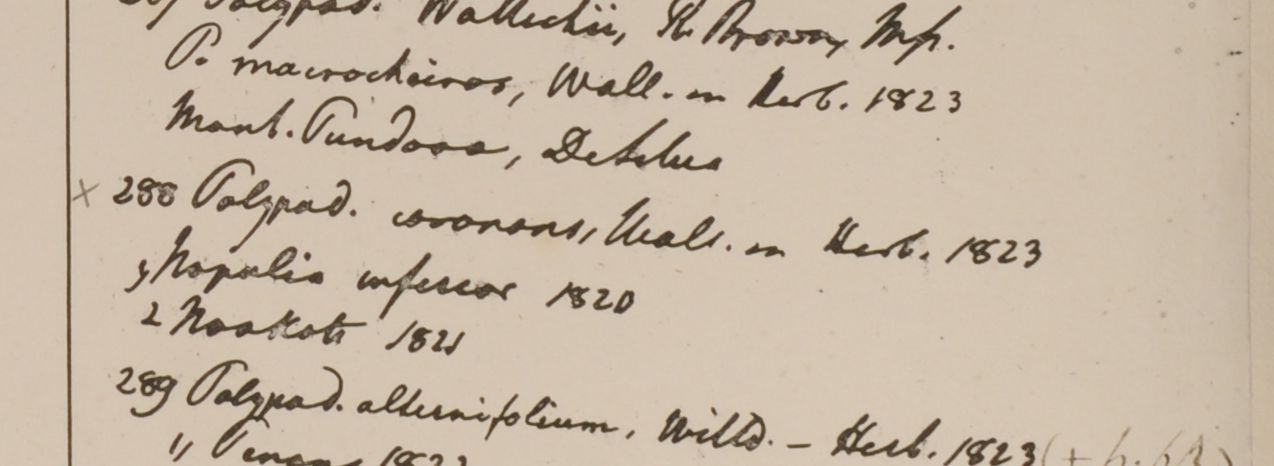 Polypod. Wallichii, R. Brown, Mss.
P. macrocheiros, Wall. in Herb. 1823
Mont. Pundooa, DeSilva
× 288 Polypod. coronans, Wall. in Herb. 1823
1 Napalia inferior 1820
2 Noakote 1821
289 Polypod. alternifolium, Willd. – Herb. 1823
" Penang 1822